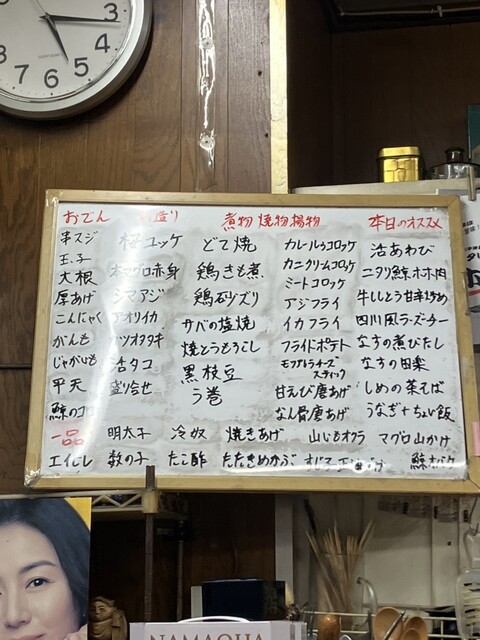 おでん
串スジ
玉子
大根
厚あげ
こんにゃく
がんも
じゃがいも
平天
鯨のコロ
造り
桜ユッケ
本マグロ赤身
シマアジ
アオリイカ
カツオタタキ
活タコ
盛り合せ
煮物 焼物 揚物
どて焼
鶏きも煮
鶏砂ズリ
サバの塩焼
焼とうもろこし
黒枝豆
う巻
カレーいもコロッケ
カニクリームコロッケ
ミートコロッケ
アジフライ
イカフライ
フライドポテト
モツァレラチーズ
スティック
甘えび唐あげ
なん骨唐あげ
本日のオススメ
活あわび
ニタリ鯨ホホ肉
牛ししとう甘辛炒め
四川風ラーズーチー
なすの煮びたし
なすの田楽
しめの茶そば
うなぎ+ちょい飯
一品
明太子
冷奴
焼きあげ
山いもオクラ
マグロ山かけ
エイヒレ
数の子
たこ酢
たたきめかぶ
鯨
NAMAQUA
12
1
2
3
4
5
6
7
8